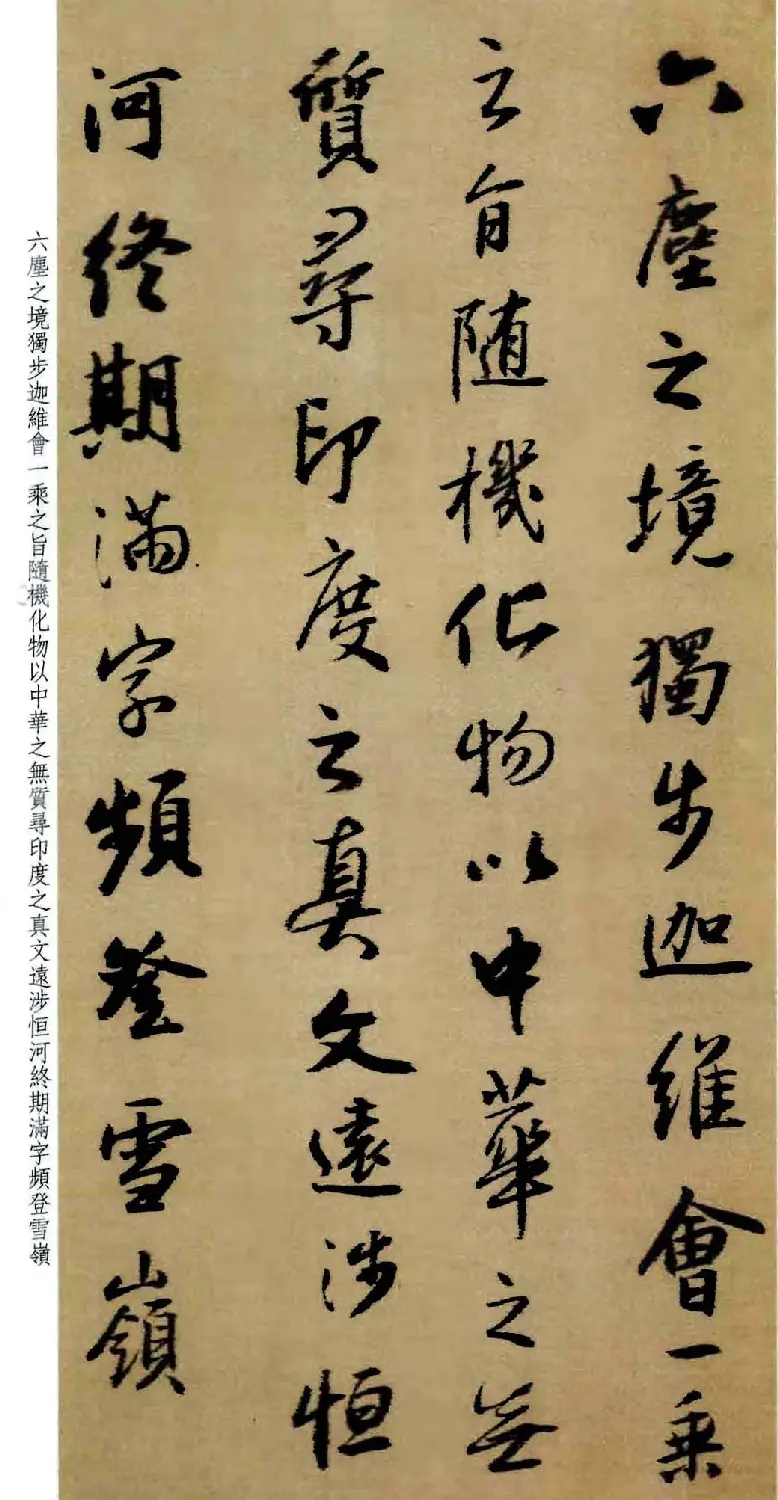 六塵之境獨步迦維會一乘
之旨随機化物以中華之無
質尋印度之真文遠涉恒
河終期滿字頻登雪嶺
六塵之境獨步迦維會一乘之旨隨機化物以中華之無質尋印度之真文遠涉恒河終期滿字頻登雪嶺